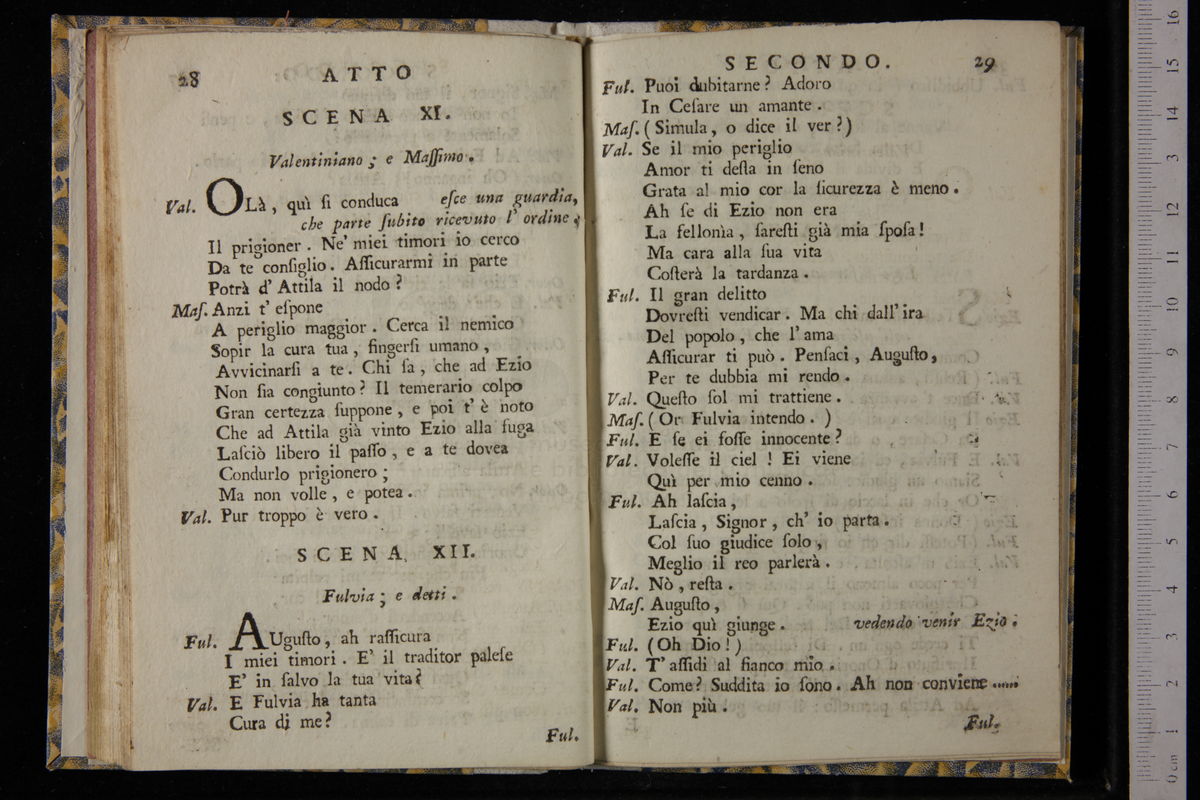 28 ATTO
SCENA XI.
Valentiniano ; e Maſſimo .
Val. OLà , quì ſi conduca eſce una guardia,
che parte ſubito ricevuto l' ordine ;
Il prigioner . Ne' miei timori io cerco
Da te conſiglio . Aſſicurarmi in parte
Potrà d' Attila il nodo ?
Maſ. Anzi t' eſpone
A periglio maggior . Cerca il nemico
Sopir la cura tua , fingerſi umano ,
Avvicinarſi a te . Chi ſa , che ad Ezio
Non ſia congiunto ? Il temerario colpo
Gran certezza ſuppone , e poi t' è noto
Che ad Attila già vinto Ezio alla fuga
Laſciò libero il paſſo , e a te dovea
Condurlo prigionero ;
Ma non volle , e potea .
Val. Pur troppo è vero .
SCENA XII.
Fulvia ; e detti .
Ful. AUguſto , ah raſſicura
I miei timori . E' il traditor paleſe
E' in ſalvo la tua vita ?
Val. E Fulvia ha tanta
Cura di me ?
Ful.
SECONDO. 29
Ful. Puoi dubitarne ? Adoro
In Ceſare un amante .
Maſ. ( Simula , o dice il ver ? )
Val. Se il mio periglio
Amor ti deſta in ſeno
Grata al mio cor la ſicurezza è meno .
Ah ſe di Ezio non era
La fellonìa , ſareſti già mia ſpoſa !
Ma cara alla ſua vita
Coſterà la tardanza .
Ful. Il gran delitto
Dovreſti vendicar . Ma chi dall' ira
Del popolo , che l' ama
Aſſicurar ti può . Penſaci , Auguſto ,
Per te dubbia mi rendo .
Val. Queſto ſol mi trattiene .
Maſ. ( Or Fulvia intendo . )
Ful. E ſe ei foſſe innocente ?
Val. Voleſſe il ciel ! Ei viene
Quì per mio cenno .
Ful. Ah laſcia ,
Laſcia , Signor , ch' io parta .
Col ſuo giudice ſolo ,
Meglio il reo parlerà .
Val. Nò , reſta .
Maſ. Auguſto ,
Ezio quì giunge . vedendo venir Ezio .
Ful. ( Oh Dio ! )
Val. T' aſſidi al fianco mio .
Ful. Come ? Suddita io ſono . Ah non conviene ......
Val. Non più .
Ful.
0 cm 1 2 3 4 5 6 7 8 9 10 11 12 13 14 15 16